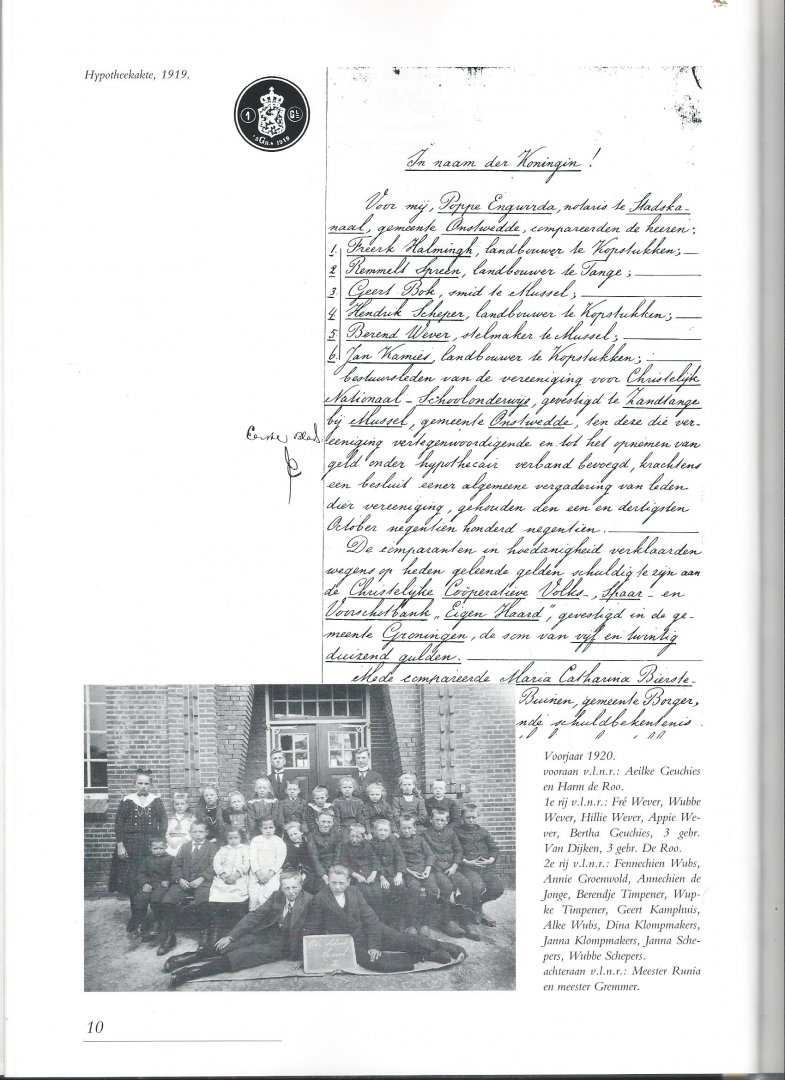 Hypotheekakte, 1919.
1 GL
'sGR. 1919
In naam der Koningin!
Voor mij, Poppe Engwirda, notaris te Stadska-
naal, gemeente Onstwedde, compareerden de heeren:
1. Freerk Halmingh, landbouwer te Kopstukken;
2 Remmelt Spreen, landbouwer te Tange;
3. Geert Bok, smid te Mussel;
4 Hendrik Scheper, landbouwer te Kopstukken;
5. Berend Wever, stelmaker te Mussel;
6. Jan Kamies, landbouwer te Kopstukken;
bestuursleden van de vereeniging voor Christelijk
Nationaal-Schoolonderwijs, gevestigd te Zandtange
bij Mussel, gemeente Onstwedde, ten deze die ver-
Eerste Blad.
eeniging vertegenwoordigende en tot het opnemen van
geld onder hypothecair verband bevoegd, krachtens
een besluit eener algemeene vergadering van leden
dier vereeniging, gehouden den een en dertigsten
October negentien honderd negentien.
De comparanten in hoedanigheid verklaarden
wegens op heden geleende gelden schuldig te zijn aan
de Christelijke Coöperatieve Volks-, Spaar- en
Voorschotbank "Eigen Haard", gevestigd in de ge-
meente Groningen, de som van vijf en twintig
duizend gulden.
Mede compareerde Maria Catharina Bierste-
Buinen, gemeente Borger,
nde schuldbekentenis
Mussel
Voorjaar 1920.
vooraan v.l.n.r.: Aeilke Geuchies
en Harm de Roo.
1e rij v.l.n.r.: Fré Wever, Wubbe
Wever, Hillie Wever, Appie We-
ver, Bertha Geuchies, 3 gebr.
Van Dijken, 3 gebr. De Roo.
2e rij v.l.n.r.: Fennechien Wubs,
Annie Groenwold, Annechien de
Jonge, Berendje Timpener, Wup-
ke Timpener, Geert Kamphuis,
Alke Wubs, Dina Klompmakers,
Janna Klompmakers, Janna Sche-
pers, Wubbe Schepers.
achteraan v.l.n.r.: Meester Runia
en meester Gremmer.
10